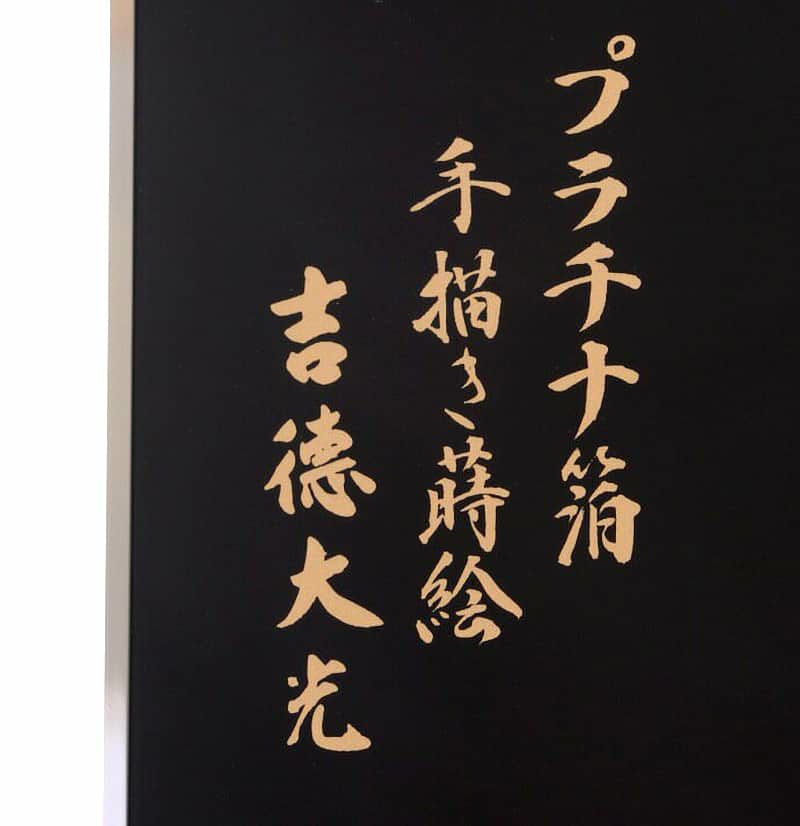 プラチナ箔
手描き蒔絵
吉德大光